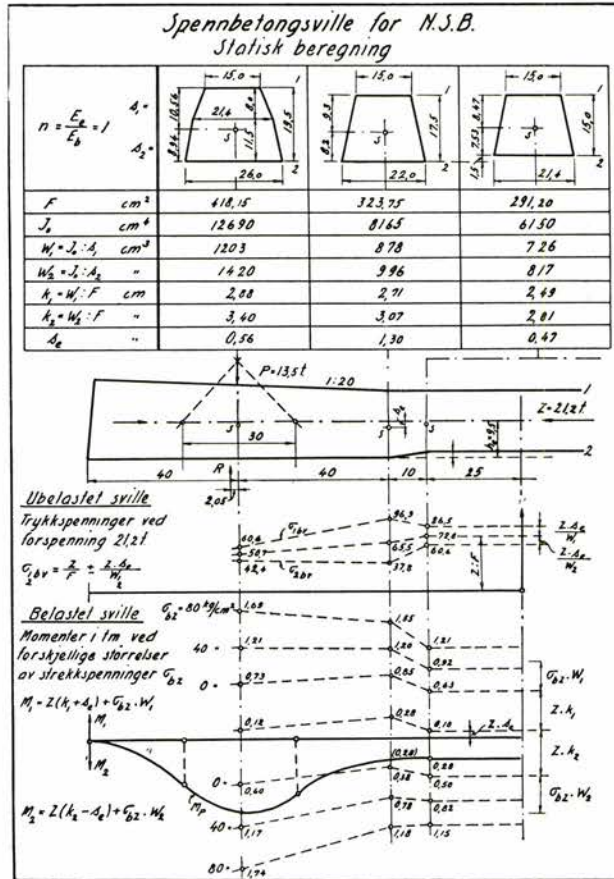 Spennbetongsville for N.S.B.
Statisk beregning
n = E_e / E_b = 1
s₁ =
s₂ =
15,0
1
10,56
8,0
21,4
19,5
8,94
11,5
s
2
26,0
15,0
1
9,3
17,5
8,2
s
2
22,0
15,0
1
8,47
15,0
7,53
s
1,5
2
21,4
F cm² 418,15 323,75 291,20
J₀ cm⁴ 12690 8165 6150
W₁ = J₀ : s₁ cm³ 1203 878 726
W₂ = J₀ : s₂ " 1420 996 817
k₁ = W₁ : F cm 2,88 2,71 2,49
k₂ = W₂ : F " 3,40 3,07 2,81
s_e " 0,56 1,30 0,47
P = 13,5 t
1:20
1
Z = 21,2 t
s
s_e
s
s
30
2
40
R
40
10
25
2,05
Ubelastet sville
Trykkspenninger ved
forspenning 21,2 t
σ₁₂bv = Z/F ± Z·s_e/W₁₂
60,6
50,7
42,4
σ₁bv
σ₂bv
96,9
65,5
37,8
86,5
72,8
60,6
Z:F
Z·s_e
W₁
Z·s_e
W₂
Belastet sville
Momenter i tm ved
forskjellige størrelser
av strekkspenninger σ_bz
M₁ = Z(k₁ + s_e) + σ_bz · W₁
σ_bz = 80 kg/cm²
1,69
1,55
1,21
40 =
1,21
1,20
0,92
0 =
0,73
0,85
0,63
0,12
0,28
0,10
Z·s_e
σ_bz · W₁
Z·k₁
Z·k₂
σ_bz · W₂
M₁
M₂
(0,20)
0 =
0,60
0,38
0,28
0,50
M_p
M₂ = Z(k₂ - s_e) + σ_bz · W₂
40 =
1,17
0,78
0,82
80 =
1,74
1,18
1,15